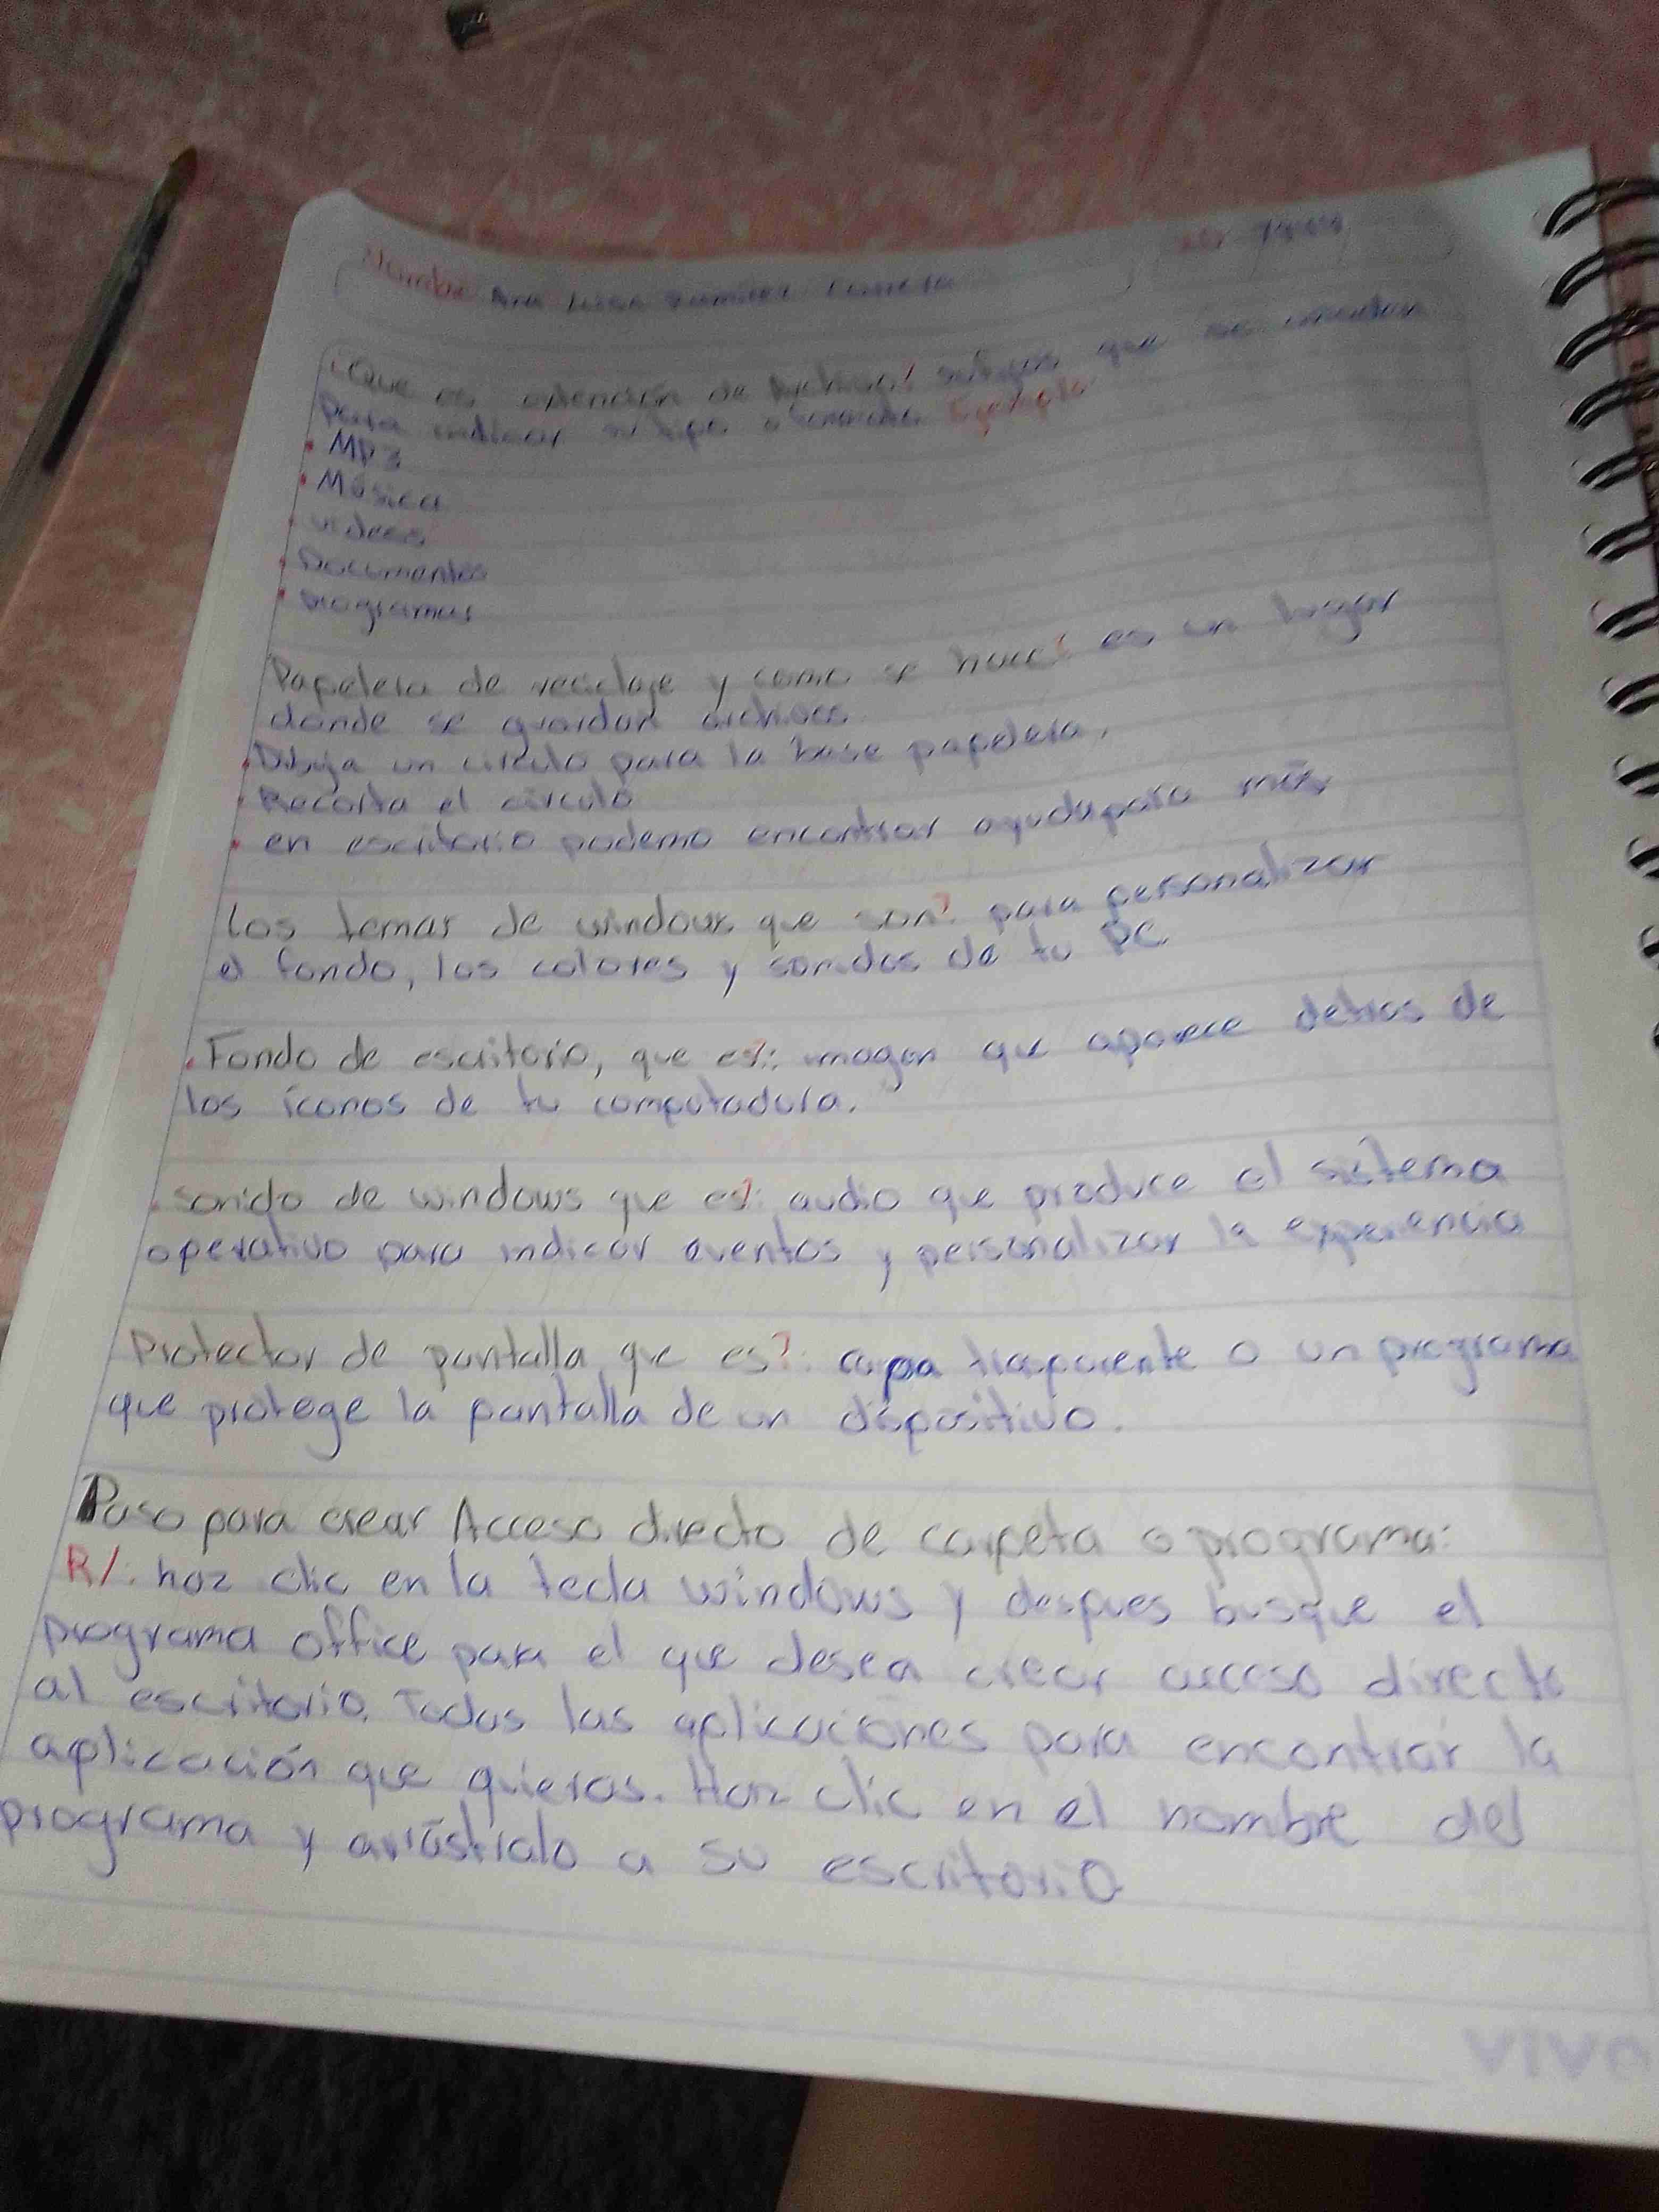 Nombre Ana Luisa Ramirez
¿Que es extención de Archivos? sufijos que se
para indicar su tipo o formato. Ejemplo
• MP3
• Música
• videos
• Documentos
• programas
Papelera de reciclaje y como se hace? es un lugar
donde se guardan archivos
• Dibuja un circulo para la base papelera.
• Recorta el círculo
• en escritorio podemo encontrar ayuda para más
Los temas de windows que son? para personalizar
el fondo, los colores y sonidos de tu PC
• Fondo de escritorio, que es?: imagen que aparece detras de
los íconos de tu computadora.
• sonido de windows que es?: audio que produce el sistema
operativo para indicar eventos y personalizar la experiencia
Protector de pantalla que es?: capa trasparente o un programa
que protege la pantalla de un dispositivo.
Paso para crear Acceso directo de carpeta o programa:
R/: haz clic en la tecla windows y despues busque el
programa office para el que desea crear acceso directo
al escritorio. Todas las aplicaciones para encontrar la
aplicación que quieras. Haz clic en el nombre del
programa y arrástralo a su escritorio
vivo